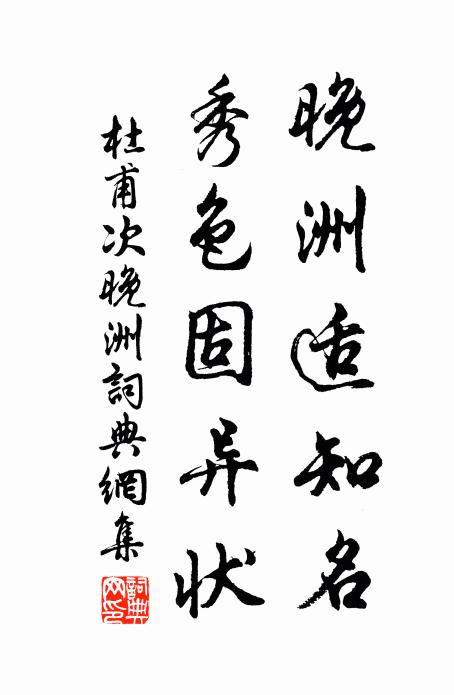 晚洲适知名
秀色固异状
杜甫次晚洲詞典網集
詞典
网印